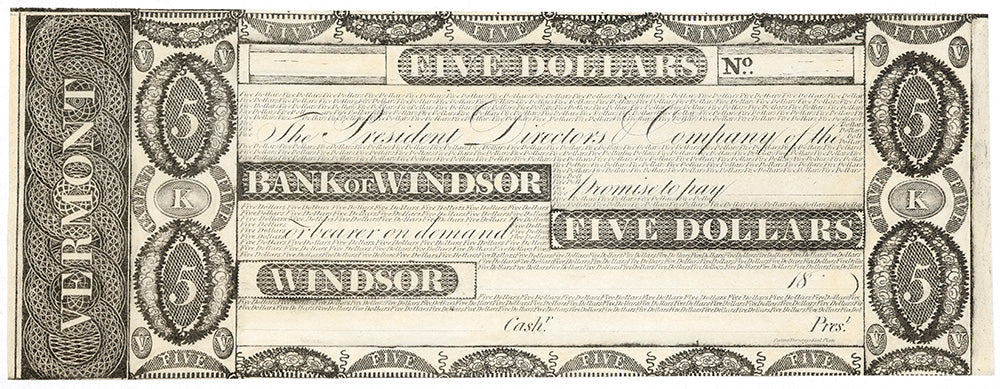 VERMONT
V FIVE FIVE FIVE FIVE V
FIVE DOLLARS No.
5 5
The President Directors & Company of the
BANK OF WINDSOR promise to pay
K K
or bearer on demand FIVE DOLLARS
5 5
WINDSOR 18
Cash.r Pres.t
V V FIVE FIVE FIVE FIVE V V